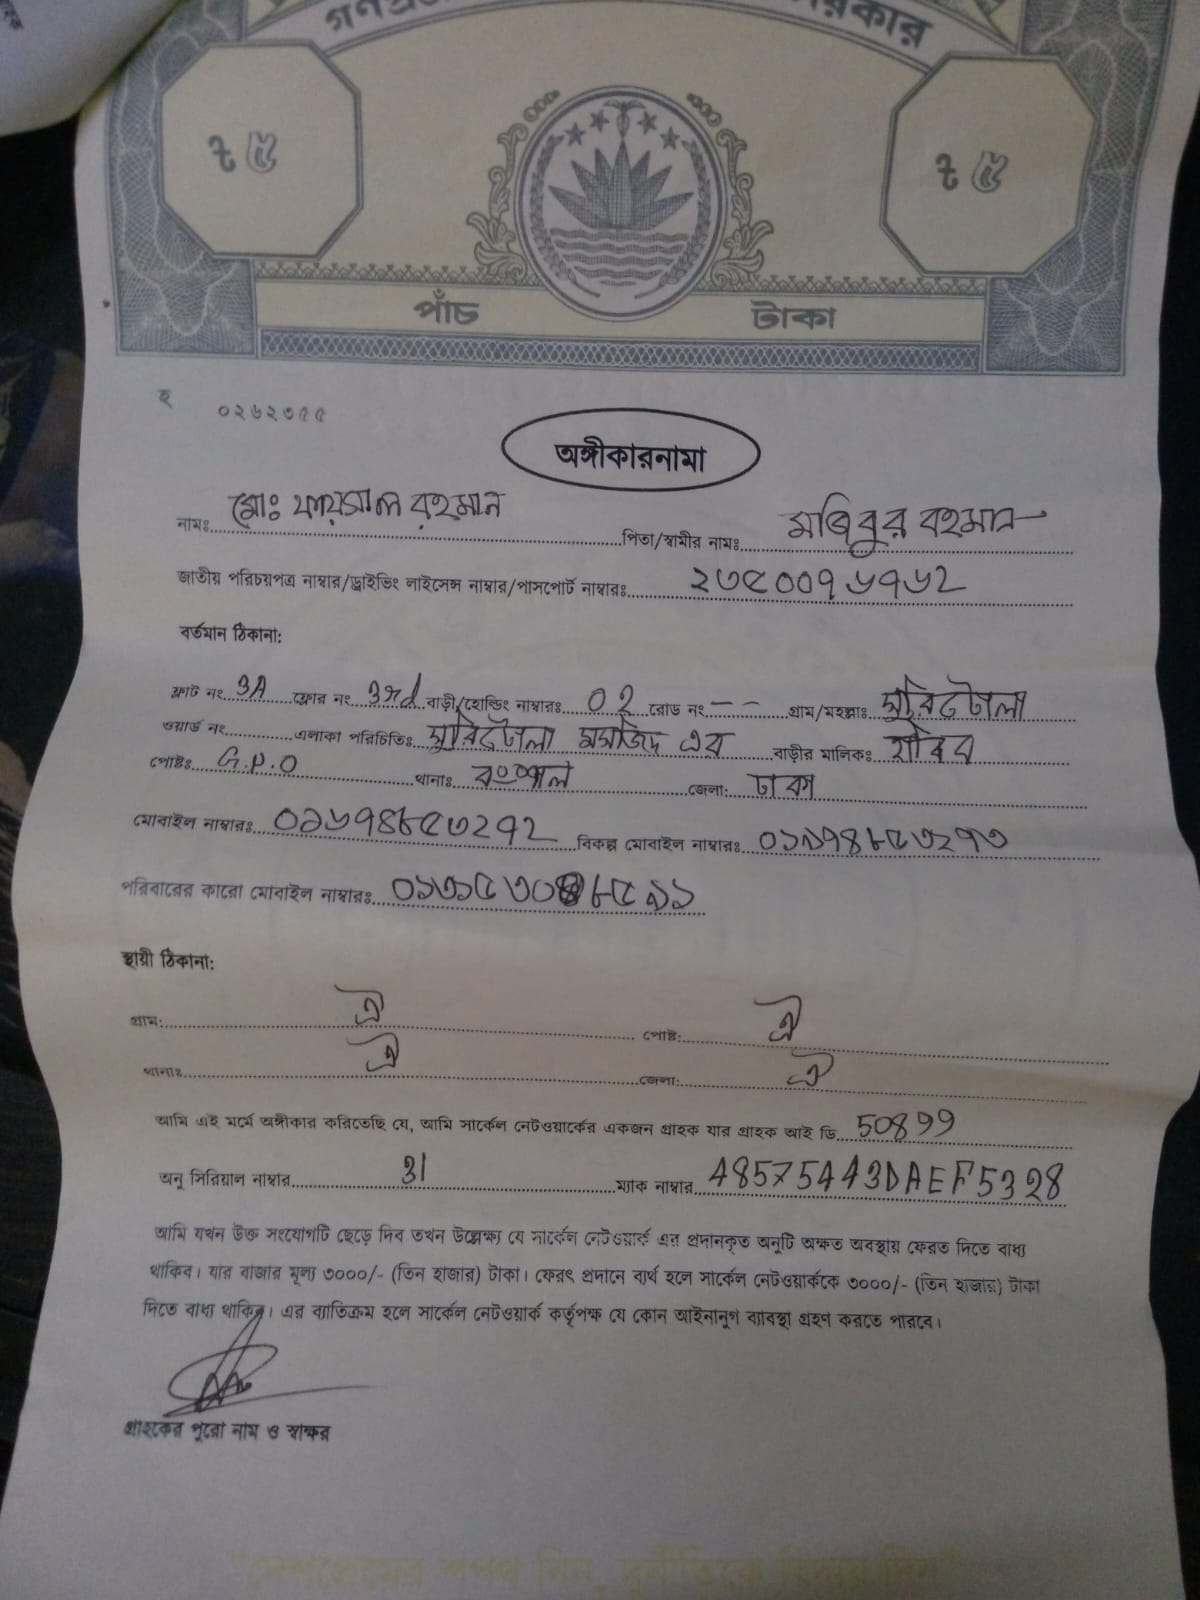 ৳ ৫
৳ ৫
পাঁচ টাকা
হ ০২৬২৩৫৫
অঙ্গীকারনামা
নামঃ মোঃ ফায়সাল রহমান পিতা/স্বামীর নামঃ মজিবুর রহমান
জাতীয় পরিচয়পত্র নাম্বার/ড্রাইভিং লাইসেন্স নাম্বার/পাসপোর্ট নাম্বারঃ ২৩৫০০৭৬৭৬২
বর্তমান ঠিকানা:
ফ্লাট নং 3A ফ্লোর নং 3rd বাড়ী/হোল্ডিং নাম্বারঃ ০২ রোড নং -- গ্রাম/মহল্লাঃ সুরিটোলা
ওয়ার্ড নং এলাকা পরিচিতিঃ সুরিটোলা মসজিদ এর বাড়ীর মালিকঃ হাবিব
পোষ্টঃ G.P.O থানাঃ বংশাল জেলা: ঢাকা
মোবাইল নাম্বারঃ ০১৬৭৪৮৫৩২৭২ বিকল্প মোবাইল নাম্বারঃ ০১৯৭৪৮৫৩২৭৩
পরিবারের কারো মোবাইল নাম্বারঃ
স্থায়ী ঠিকানা:
গ্রাম: ঐ পোষ্ট: ঐ
থানাঃ ঐ জেলা: ঐ
আমি এই মর্মে অঙ্গীকার করিতেছি যে, আমি সার্কেল নেটওয়ার্কের একজন গ্রাহক যার গ্রাহক আই ডি 50899
অনু সিরিয়াল নাম্বার 31 ম্যাক নাম্বার 48575443DAEF5328
আমি যখন উক্ত সংযোগটি ছেড়ে দিব তখন উল্লেক্ষ্য যে সার্কেল নেটওয়ার্ক এর প্রদানকৃত অনুটি অক্ষত অবস্থায় ফেরত দিতে বাধ্য
থাকিব। যার বাজার মূল্য ৩০০০/- (তিন হাজার) টাকা। ফেরৎ প্রদানে ব্যর্থ হলে সার্কেল নেটওয়ার্ককে ৩০০০/- (তিন হাজার) টাকা
দিতে বাধ্য থাকিব। এর ব্যাতিক্রম হলে সার্কেল নেটওয়ার্ক কর্তৃপক্ষ যে কোন আইনানুগ ব্যাবস্থা গ্রহণ করতে পারবে।
গ্রাহকের পুরো নাম ও স্বাক্ষর
"দেশপ্রেমের শপথ নিন, দুর্নীতিকে বিদায় দিন"